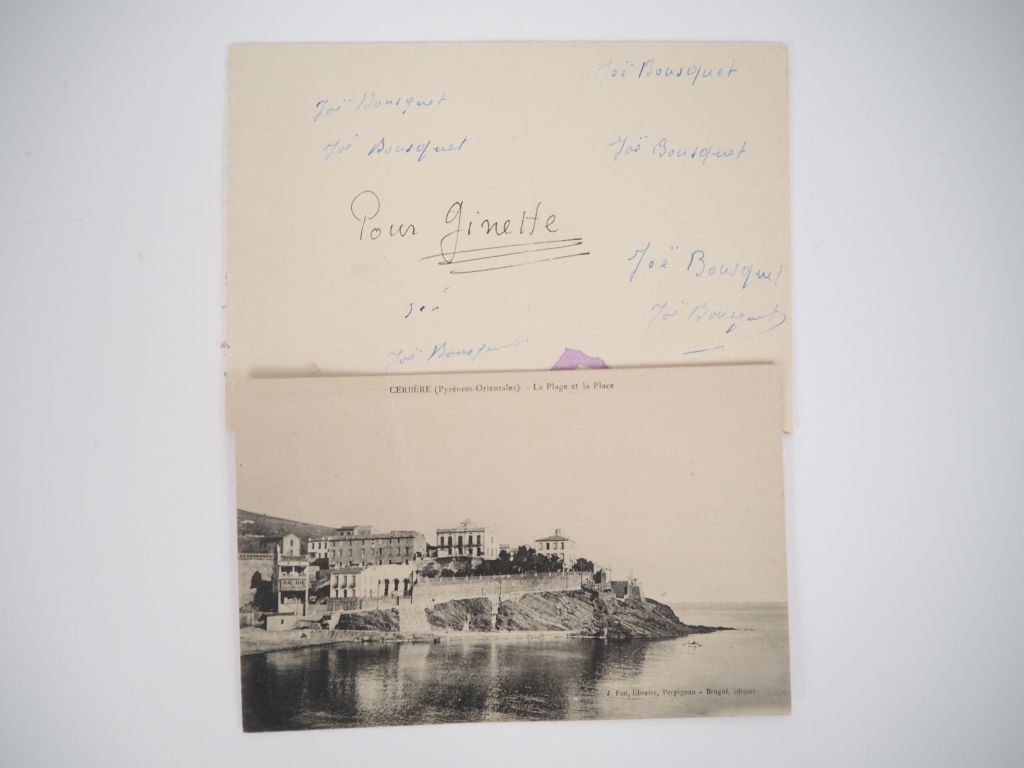 Joë Bousquet
Joë Bousquet
Joë Bousquet
Joë Bousquet
Pour Ginette
Joë Bousquet
Joë Bousquet
Joë Bousquet
CERBÈRE (Pyrénées-Orientales). - La Plage et la Place
J. Fau, libraire, Perpignan - Brugat, éditeur